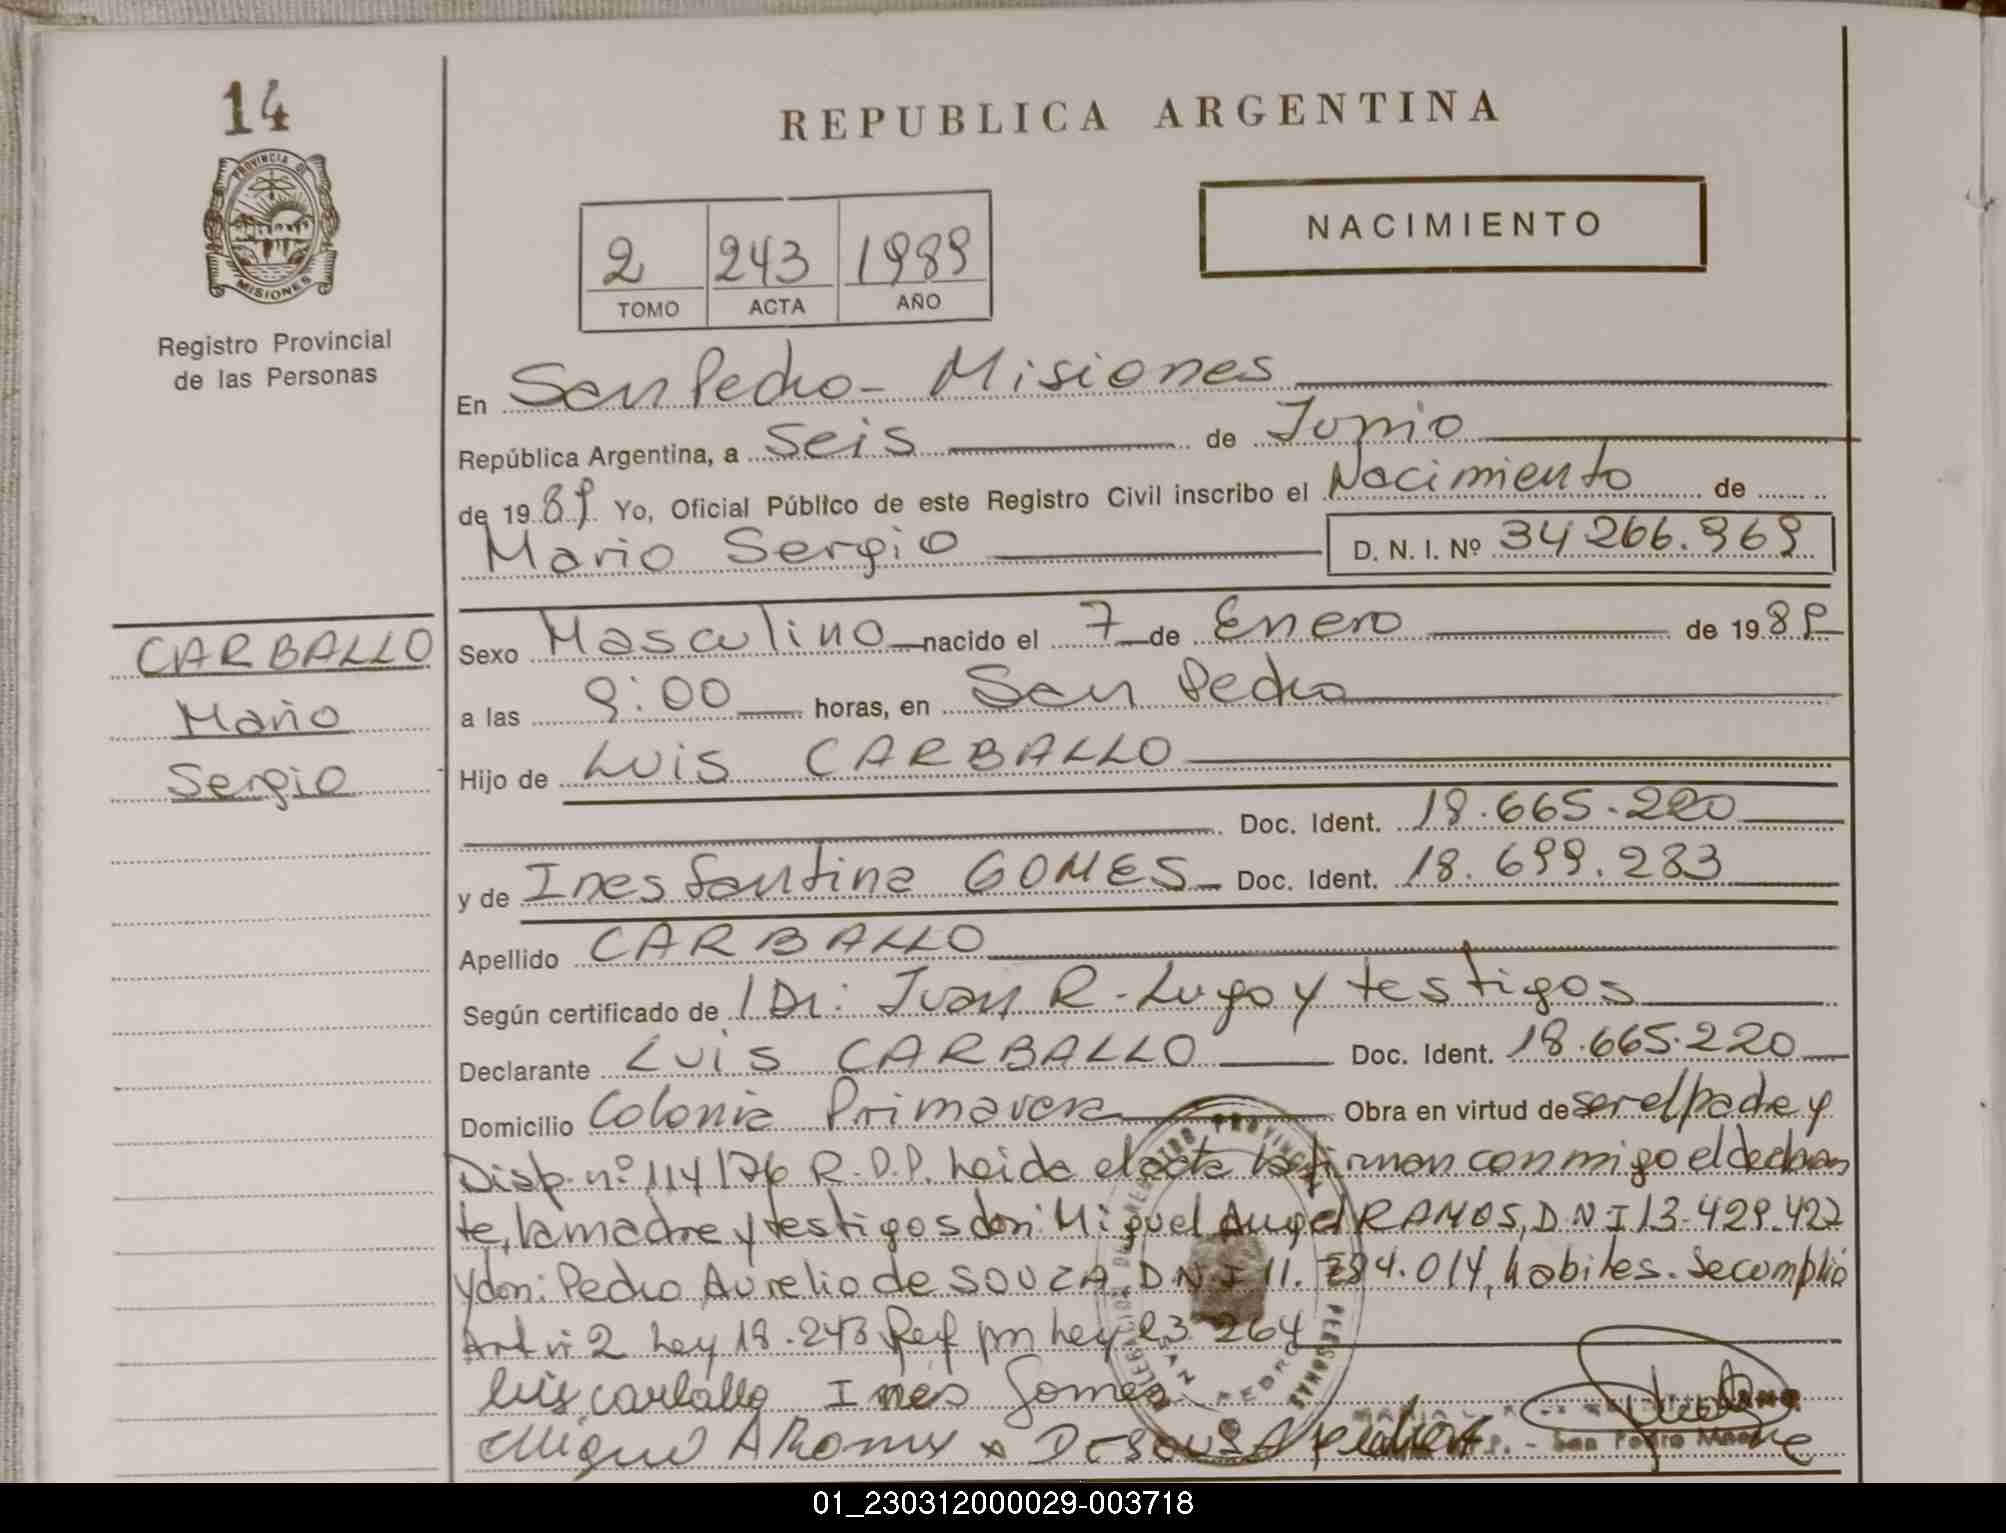 14
PROVINCIA DE
MISIONES
Registro Provincial
de las Personas
REPUBLICA ARGENTINA
NACIMIENTO
2 243 1989
TOMO ACTA AÑO
En San Pedro - Misiones
República Argentina, a Seis de Junio
de 1989 Yo, Oficial Público de este Registro Civil inscribo el Nacimiento de
Mario Sergio D. N. I. Nº 34266.969
CARBALLO
Mario
Sergio
Sexo Masculino nacido el 7 de Enero de 1989
a las 9:00 horas, en San Pedro
Hijo de Luis CARBALLO
Doc. Ident. 18.665.220
y de Ines Santina GOMES Doc. Ident. 18.699.283
Apellido CARBALLO
Según certificado de / Dr: Juan R. Lugo y testigos
Declarante Luis CARBALLO Doc. Ident. 18.665.220
Domicilio Colonia Primavera Obra en virtud de ser el padre y
Disp. nº 114/76 R.P.P. Leida el acta la firman conmigo el declaran
te, la madre y testigos don: Miguel Angel RAMOS, DNI 13.429.422
y don: Pedro Aurelio de SOUZA DNI 11. 014, habiles. Se cumplió
Art nº 2 Ley 18.248 Ref por Ley 23 264
luis carballo Ines Gomes
Miguel A Ramos DESOUSA
SAN PEDRO
San Pedro
01_230312000029-003718